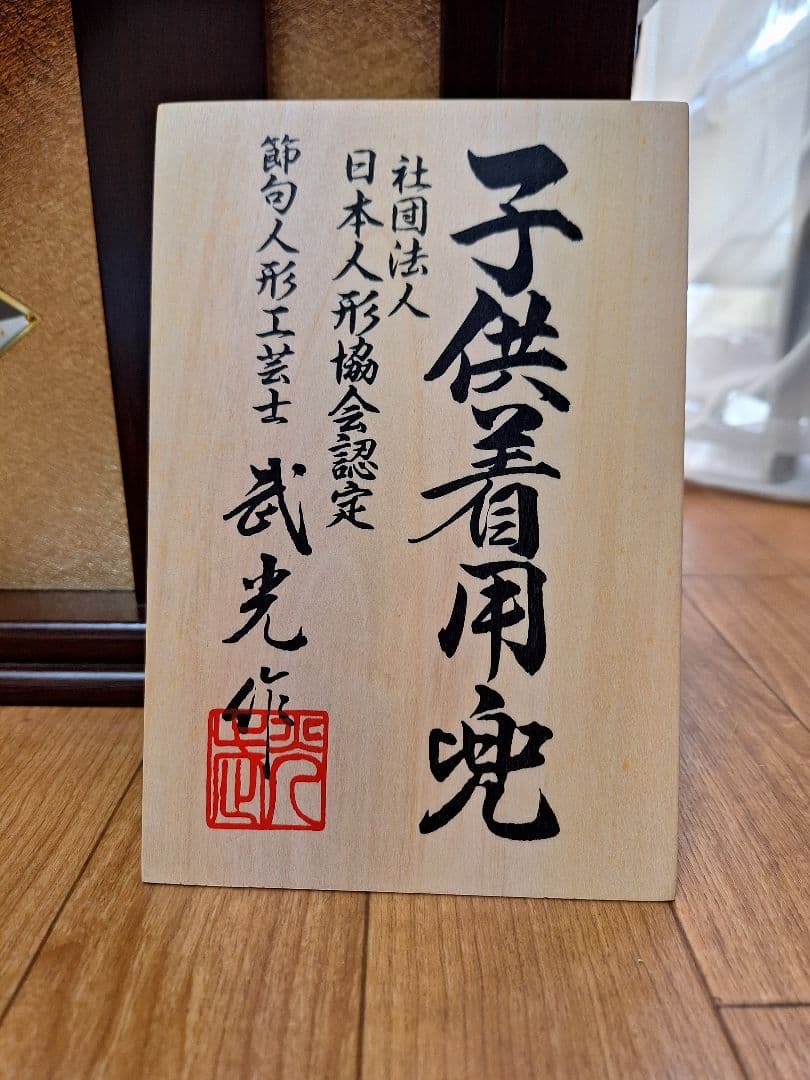 子供着用兜
社団法人
日本人形協会認定
節句人形工芸士 武光作
武光